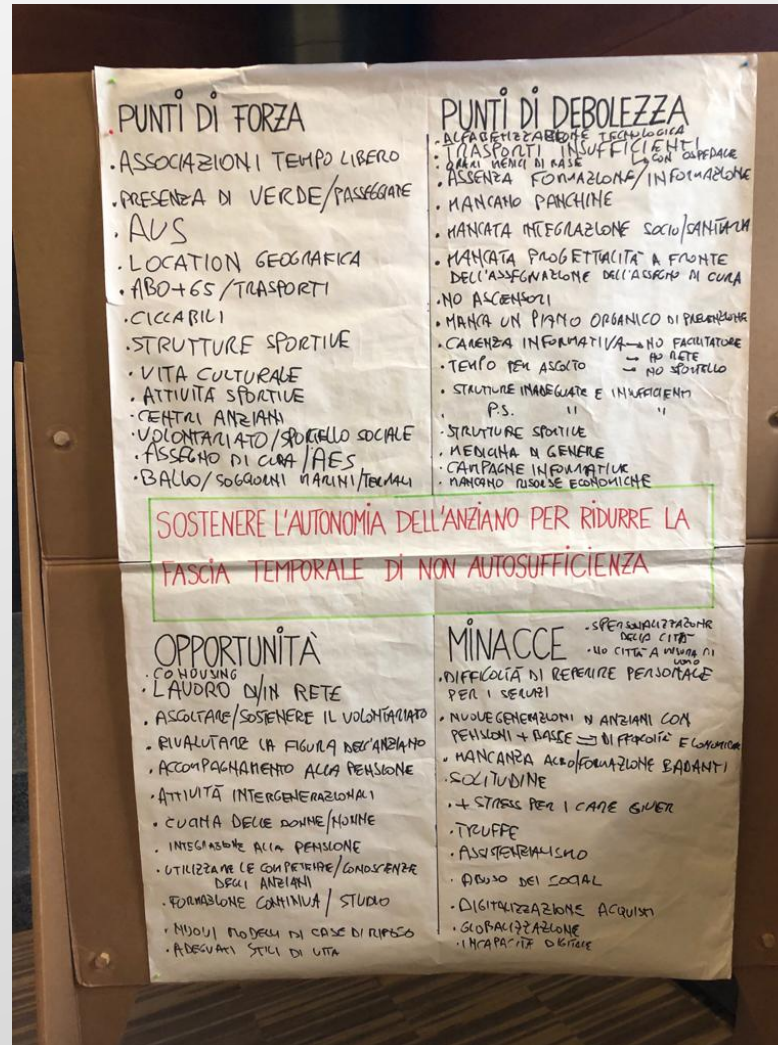 PUNTI DI FORZA
· ASSOCIAZIONI TEMPO LIBERO
· PRESENZA DI VERDE/PASSEGGIATE
· AUS
· LOCATION GEOGRAFICA
· ABO+65/TRASPORTI
· CICLABILI
· STRUTTURE SPORTIVE
· VITA CULTURALE
· ATTIVITÀ SPORTIVE
· CENTRI ANZIANI
· VOLONTARIATO/SPORTELLO SOCIALE
· ASSEGNO DI CURA/AES
· BALLO/SOGGIORNI MARINI/TERMALI
PUNTI DI DEBOLEZZA
· ALFABETIZZAZIONE TECNOLOGICA
· TRASPORTI INSUFFICIENTI
↳ CON OSPEDALE
· ORARI MEDICI DI BASE
· ASSENZA FORMAZIONE/INFORMAZIONE
· MANCANO PANCHINE
· MANCATA INTEGRAZIONE SOCIO/SANITARIA
· MANCATA PROGETTUALITÀ A FRONTE
DELL'ASSEGNAZIONE DELL'ASSEGNO DI CURA
· NO ASCENSORI
· MANCA UN PIANO ORGANICO DI PREVENZIONE
· CARENZA INFORMATIVA → NO FACILITATORE
→ NO RETE
· TEMPO PER ASCOLTO → NO SPORTELLO
· STRUTTURE INADEGUATE E INSUFFICIENTI
· P.S. " "
· STRUTTURE SPORTIVE
· MEDICINA DI GENERE
· CAMPAGNE INFORMATIVE
· MANCANO RISORSE ECONOMICHE
SOSTENERE L'AUTONOMIA DELL'ANZIANO PER RIDURRE LA
FASCIA TEMPORALE DI NON AUTOSUFFICIENZA
OPPORTUNITÀ
· COHOUSING
· LAVORO DI/IN RETE
· ASCOLTARE/SOSTENERE IL VOLONTARIATO
· RIVALUTARE LA FIGURA DELL'ANZIANO
· ACCOMPAGNAMENTO ALLA PENSIONE
· ATTIVITÀ INTERGENERAZIONALI
· CUCINA DELLE DONNE/NONNE
· INTEGRAZIONE ALLA PENSIONE
· UTILIZZARE LE COMPETENZE/CONOSCENZE
DEGLI ANZIANI
· FORMAZIONE CONTINUA / STUDIO
· NUOVI MODELLI DI CASE DI RIPOSO
· ADEGUATI STILI DI VITA
MINACCE
· SPERSONALIZZAZIONE
DELLA CITTÀ
· NO CITTÀ A MISURA DI
UOMO
· DIFFICOLTÀ DI REPERIRE PERSONALE
PER I SERVIZI
· NUOVE GENERAZIONI DI ANZIANI CON
PENSIONI + BASSE ⇒ DIFFICOLTÀ ECONOMICA
· MANCANZA ALBO/FORMAZIONE BADANTI
· SOLITUDINE
· + STRESS PER I CARE GIVER
· TRUFFE
· ASSISTENZIALISMO
· ABUSO DEI SOCIAL
· DIGITALIZZAZIONE ACQUISTI
· GLOBALIZZAZIONE
· INCAPACITÀ DIGITALE